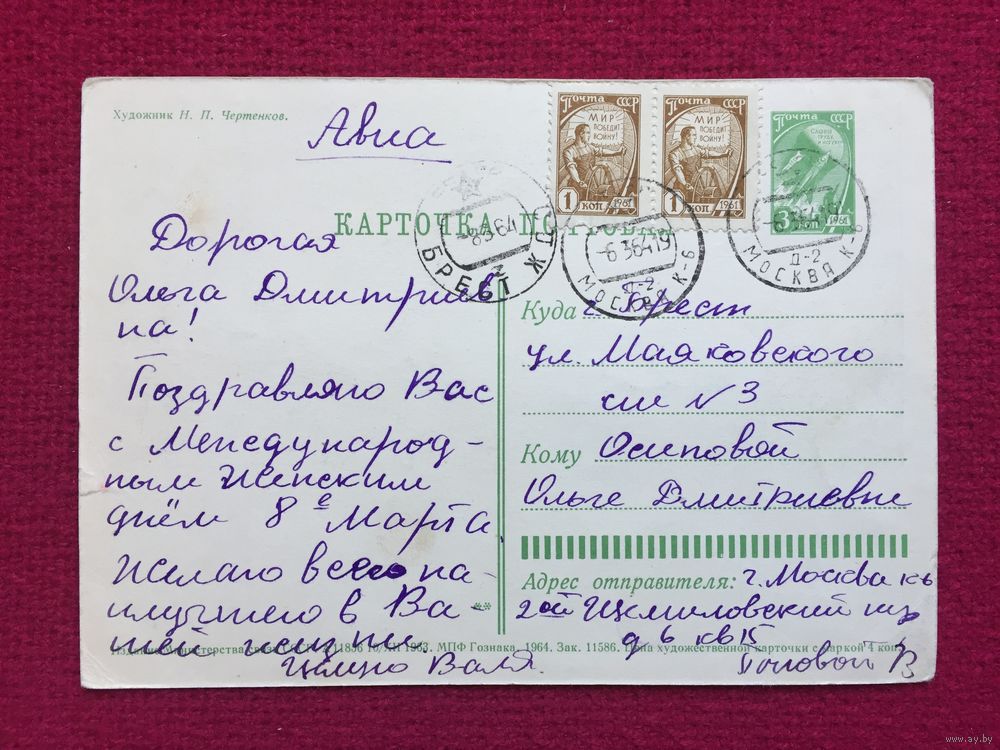 Художник Н. П. Чертенков.
Авиа
Почта СССР
МИР ПОБЕДИТ ВОЙНУ!
1 КОП 1961
Почта СССР
МИР ПОБЕДИТ ВОЙНУ!
1 КОП 1961
Почта СССР
3 КОП 1961
КАРТОЧКА ПО
БРЕСТ ЖД
-8364
-6 36419
Д-2
МОСКВА К-6
Д-2
МОСКВА К-6
Дорогая
Ольга Дмитриев
на!
Поздравляю Вас
с Международ-
ным Женским
днём 8е Марта
Желаю всего на-
илучшего в Ва-
шей жизни
Целую Валя.
Куда г. Брест
ул. Маяковского
№ 3
Кому Осиповой
Ольге Дмитриевне
Адрес отправителя: г. Москва
2ой Щемиловский пер
д 6 кв 15
В
Издание Министерства связи СССР. 10/XII 1963. МПФ Гознака. 1964. Зак. 11586. Цена художественной карточки с маркой 4 коп.
www.ay.by